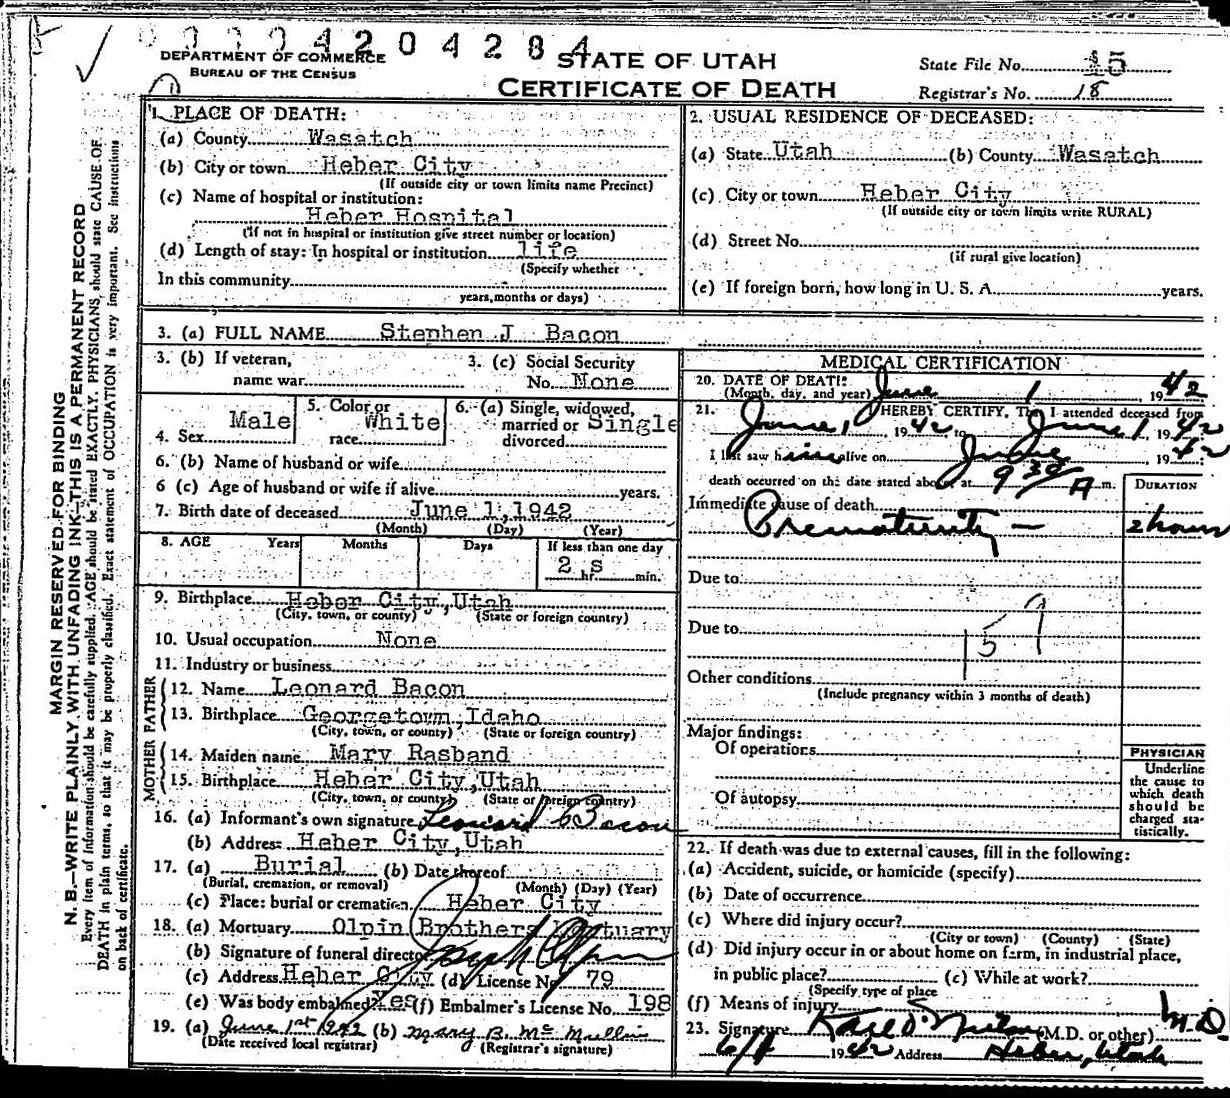 00004204284
DEPARTMENT OF COMMERCE
BUREAU OF THE CENSUS
STATE OF UTAH
CERTIFICATE OF DEATH
State File No. 15
Registrar's No. 18
MARGIN RESERVED FOR BINDING
N. B.—WRITE PLAINLY WITH UNFADING INK—THIS IS A PERMANENT RECORD
Every item of information should be carefully supplied. AGE should be stated EXACTLY. PHYSICIANS, should state CAUSE OF
DEATH in plain terms, so that it may be properly classified. Exact statement of OCCUPATION is very important. See instructions
on back of certificate.
1. PLACE OF DEATH:
(a) County Wasatch
(b) City or town Heber City
(If outside city or town limits name Precinct)
(c) Name of hospital or institution:
Heber Hospital
(If not in hospital or institution give street number or location)
(d) Length of stay: In hospital or institution life
(Specify whether
In this community
years, months or days)
2. USUAL RESIDENCE OF DECEASED:
(a) State Utah (b) County Wasatch
(c) City or town Heber City
(If outside city or town limits write RURAL)
(d) Street No.
(if rural give location)
(e) If foreign born, how long in U. S. A. years.
3. (a) FULL NAME Stephen J Bacon
3. (b) If veteran,
name war
3. (c) Social Security
No. None
4. Sex Male
5. Color or
race White
6. (a) Single, widowed,
married or Single
divorced
6. (b) Name of husband or wife
6 (c) Age of husband or wife if alive years.
7. Birth date of deceased June 1, 1942
(Month) (Day) (Year)
8. AGE Years Months Days If less than one day
2 s
hr. min.
9. Birthplace Heber City, Utah
(City, town, or county) (State or foreign country)
10. Usual occupation None
11. Industry or business
FATHER
12. Name Leonard Bacon
13. Birthplace Georgetown, Idaho
(City, town, or county) (State or foreign country)
MOTHER
14. Maiden name Mary Rasband
15. Birthplace Heber City, Utah
(City, town, or county) (State or foreign country)
16. (a) Informant's own signature Leonard Bacon
(b) Address Heber City, Utah
17. (a) Burial (b) Date thereof
(Burial, cremation, or removal) (Month) (Day) (Year)
(c) Place: burial or cremation Heber City
18. (a) Mortuary Olpin Brothers Mortuary
(b) Signature of funeral director
(c) Address Heber City (d) License No 79
(e) Was body embalmed? Yes (f) Embalmer's License No. 198
19. (a) June 1st 1942 (b) Mary B. McMullin
(Date received local registrar) (Registrar's signature)
MEDICAL CERTIFICATION
20. DATE OF DEATH:
(Month, day, and year) June 1, 1942
21. I HEREBY CERTIFY, That I attended deceased from
June 1, 1942 to June 1, 1942
I last saw him alive on June 1942
death occurred on the date stated above, at 9 30 A m.
DURATION
Immediate cause of death
Prematurity — 2 hours
Due to
159
Due to
Other conditions
(Include pregnancy within 3 months of death)
Major findings:
Of operations
Of autopsy
PHYSICIAN
Underline
the cause to
which death
should be
charged sta-
tistically.
22. If death was due to external causes, fill in the following:
(a) Accident, suicide, or homicide (specify)
(b) Date of occurrence
(c) Where did injury occur?
(City or town) (County) (State)
(d) Did injury occur in or about home on farm, in industrial place,
in public place? (e) While at work?
(Specify type of place
(f) Means of injury
23. Signature Karl O. Nielson (M.D. or other) M.D.
6/1 1942 Address Heber, Utah